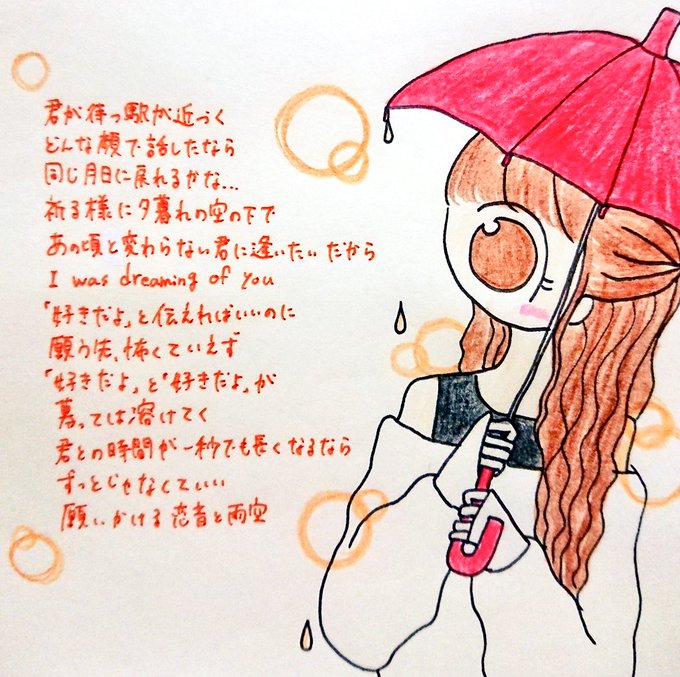 君が待つ駅が近づく
どんな顔で話したなら
同じ月日に戻れるかな…
祈る様に夕暮れの空の下で
あの頃と変わらない君に逢いたいだから
I was dreaming of you
「好きだよ」と伝えればいいのに
願う先、怖くていえず
「好きだよ」と「好きだよ」が
募っては溶けてく
君との時間が一秒でも長くなるなら
ずっとじゃなくていい
願いかける恋音と雨空